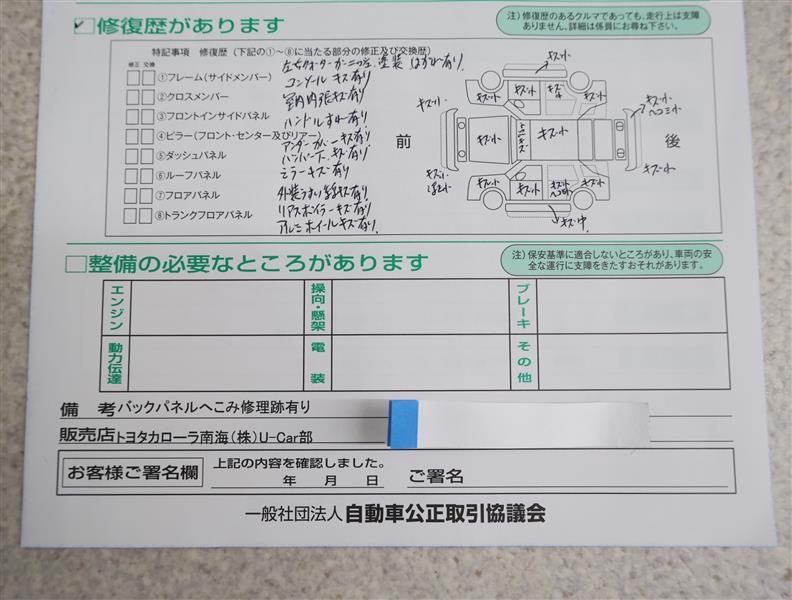 ✓□修復歴があります
注）修復歴のあるクルマであっても、走行上は支障
ありません、詳細は係員にお尋ね下さい。
特記事項 修復歴（下記の①～⑧に当たる部分の修正及び交換歴）
修正 交換
塗装 はずれ有り
①フレーム（サイドメンバー）
コンソール キズ有り
②クロスメンバー
室内内張キズ有り
③フロントインサイドパネル
ハンドルすれ有り
④ピラー（フロント・センター及びリアー）
アンダーカバーキズ有り
⑤ダッシュパネル
⑥ルーフパネル
ミラーキズ有り
⑦フロアパネル
リアスポイラーキズ有り
⑧トランクフロアパネル
アルミホイールキズ有り
前
後
キズ小
キズ小
キズ小
キズ小
ヘコミ小
キズ小
キズ小
キズ中
□整備の必要なところがあります
注）保安基準に適合しないところがあり、車両の安
全な運行に支障をきたすおそれがあります。
エンジン
操向・懸架
ブレーキ
動力伝達
電装
その他
備 考 バックパネルへこみ修理跡有り
販売店 トヨタカローラ南海（株）U-Car部
お客様ご署名欄
上記の内容を確認しました。
年 月 日
ご署名
一般社団法人 自動車公正取引協議会